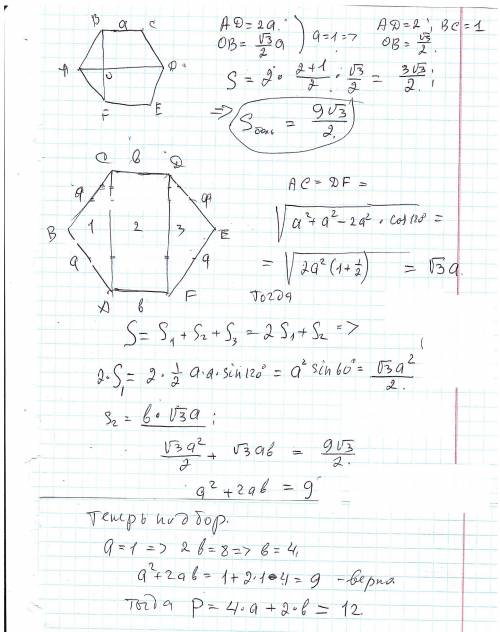 B a C
A O D
F E
AD=2a.
OB = √3/2 a
a=1 =>
AD=2; BC=1
OB = √3/2.
S = 2 · (2+1)/2 · √3/2 = 3√3/2;
=> S = 9√3/2.
C b D
a a
B 1 2 3 E
a a
A b F
AC = DF =
√(a² + a² − 2a² · cos 120° =
= √(2a²(1+½)) = √3 a.
Тогда
S = S₁ + S₂ + S₃ = 2S₁ + S₂ =>
2·S₁ = 2·½ a·a·sin120° = a² sin60° = √3a²/2.
S₂ = b·√3a;
√3a²/2 + √3ab = 9√3/2.
a² + 2ab = 9
Теперь подбор.
a=1 => 2b=8 => b=4.
a²+2ab = 1+2·1·4 = 9 - верно
тогда P = 4·a + 2·b = 12.